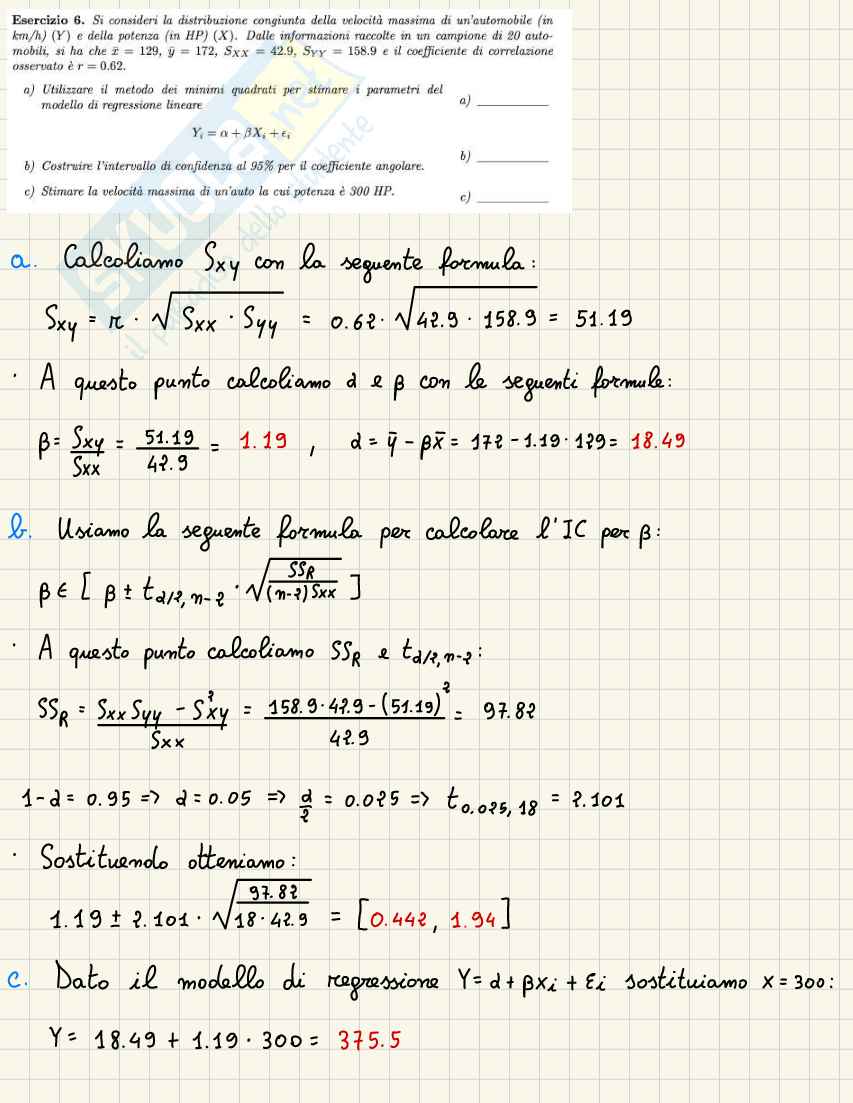 Esercizio 6. Si consideri la distribuzione congiunta della velocità massima di un'automobile (in
km/h) (Y) e della potenza (in HP) (X). Dalle informazioni raccolte in un campione di 20 auto-
mobili, si ha che x̄ = 129, ȳ = 172, S_XX = 42.9, S_YY = 158.9 e il coefficiente di correlazione
osservato è r = 0.62.
a) Utilizzare il metodo dei minimi quadrati per stimare i parametri del
modello di regressione lineare
a) ________
Y_i = α + βX_i + ϵ_i
b) Costruire l'intervallo di confidenza al 95% per il coefficiente angolare.
b) ________
c) Stimare la velocità massima di un'auto la cui potenza è 300 HP.
c) ________
SKUOLA.net
il paradiso dello studente
a. Calcoliamo Sxy con la seguente formula:
Sxy = r · √(Sxx · Syy) = 0.62 · √(42.9 · 158.9) = 51.19
· A questo punto calcoliamo α e β con le seguenti formule:
β = Sxy/Sxx = 51.19/42.9 = 1.19 , α = ȳ - βx̄ = 172 - 1.19 · 129 = 18.49
b. Usiamo la seguente formula per calcolare l'IC per β:
β ∈ [ β ± t_α/2, n-2 · √(SS_R/((n-2) Sxx)) ]
· A questo punto calcoliamo SS_R e t_α/2, n-2:
SS_R = (Sxx Syy - S²xy)/Sxx = (158.9 · 42.9 - (51.19)²)/42.9 = 97.82
1-α = 0.95 => α = 0.05 => α/2 = 0.025 => t_0.025, 18 = 2.101
· Sostituendo otteniamo:
1.19 ± 2.101 · √(97.82/(18 · 42.9)) = [0.442, 1.94]
c. Dato il modello di regressione Y = α + βxi + εi sostituiamo x = 300:
Y = 18.49 + 1.19 · 300 = 375.5